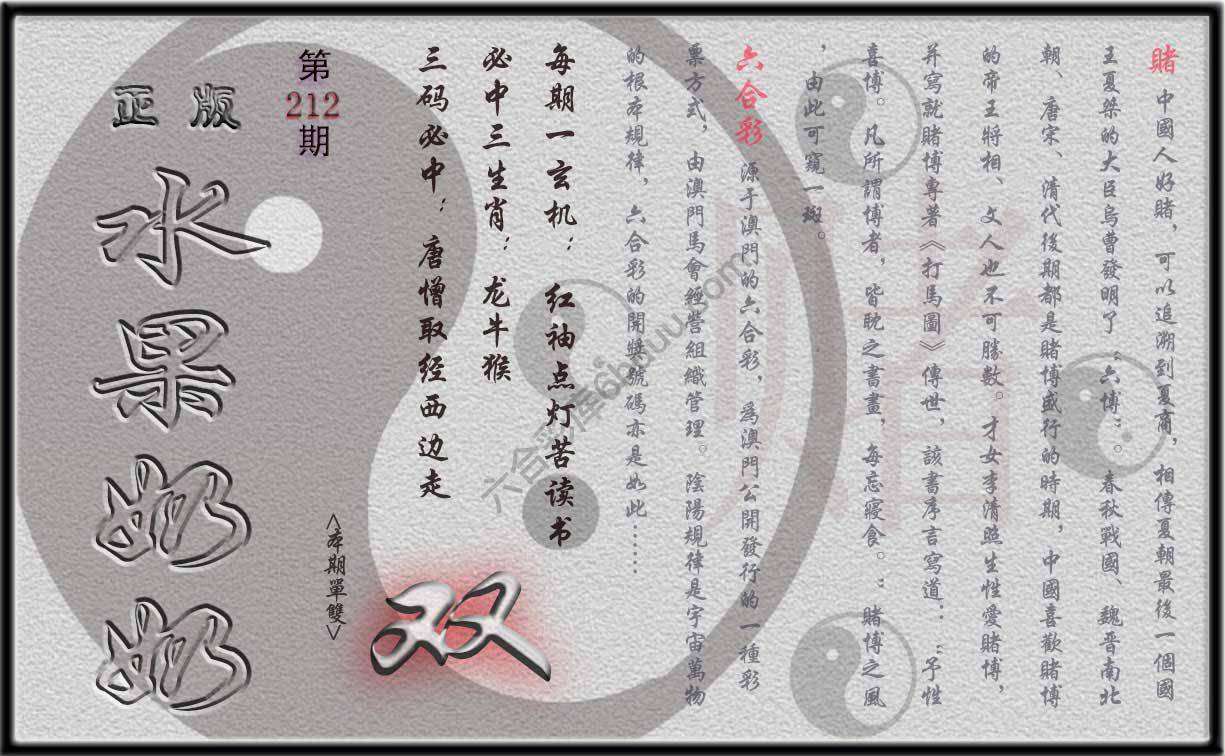 賭 中國人好賭，可以追溯到夏商，相傳夏朝最後一個國
王夏桀的大臣烏曹發明了“六博”。春秋戰國、魏晋南北
朝、唐宋、清代後期都是賭博盛行的時期，中國喜歡賭博
的帝王將相、文人也不可勝數。才女李清照生性愛賭博，
并寫就賭博專著《打馬圖》傳世，該書序言寫道：“予性
喜博。凡所謂博者，皆耽之書畫，每忘寢食。”賭博之風
，由此可窺一斑。
六合彩 源于澳門的六合彩，爲澳門公開發行的一種彩
票方式，由澳門馬會經營組織管理。陰陽規律是宇宙萬物
的根本規律，六合彩的開獎號碼亦是如此……
每期一玄机：红袖点灯苦读书
必中三生肖：龙牛猴
三码必中：唐憎取经西边走
第212期
<本期單雙>
双
正版
水果奶奶
賭